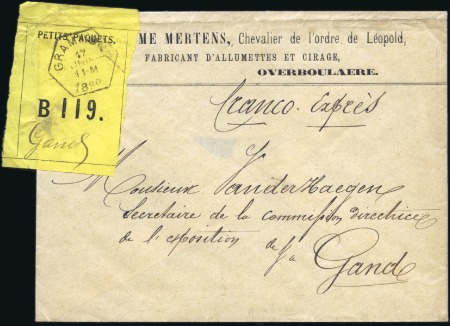 PETITS PAQUETS.
GRAMMONT
11-M
B 119.
Gand
ME MERTENS, Chevalier de l'ordre de Léopold,
FABRICANT D'ALLUMETTES ET CIRAGE,
OVERBOULAERE.
Franco Exprès
Monsieur VanderHaegen
Secretaire de la Commission directrice
de l'exposition de
Gand